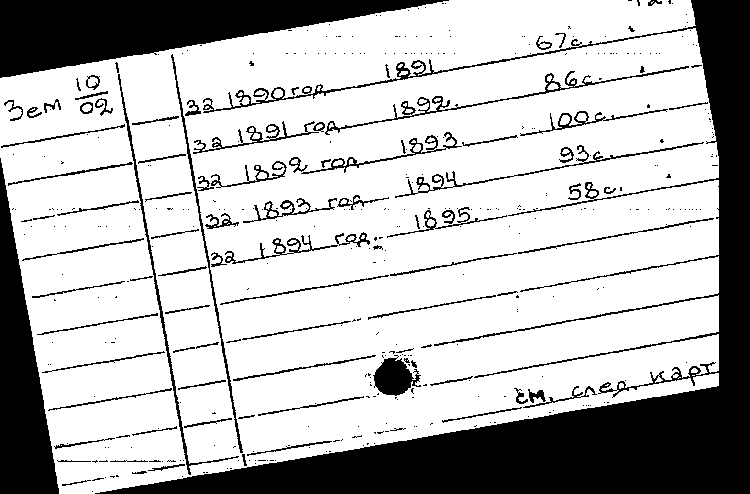 Зем 10/02
за 1890 год 1891 67с.
за 1891 год 1892. 86с.
за 1892 год 1893. 100с.
за 1893 год 1894 93с.
за 1894 год. 1895. 58с.
см. след. карт